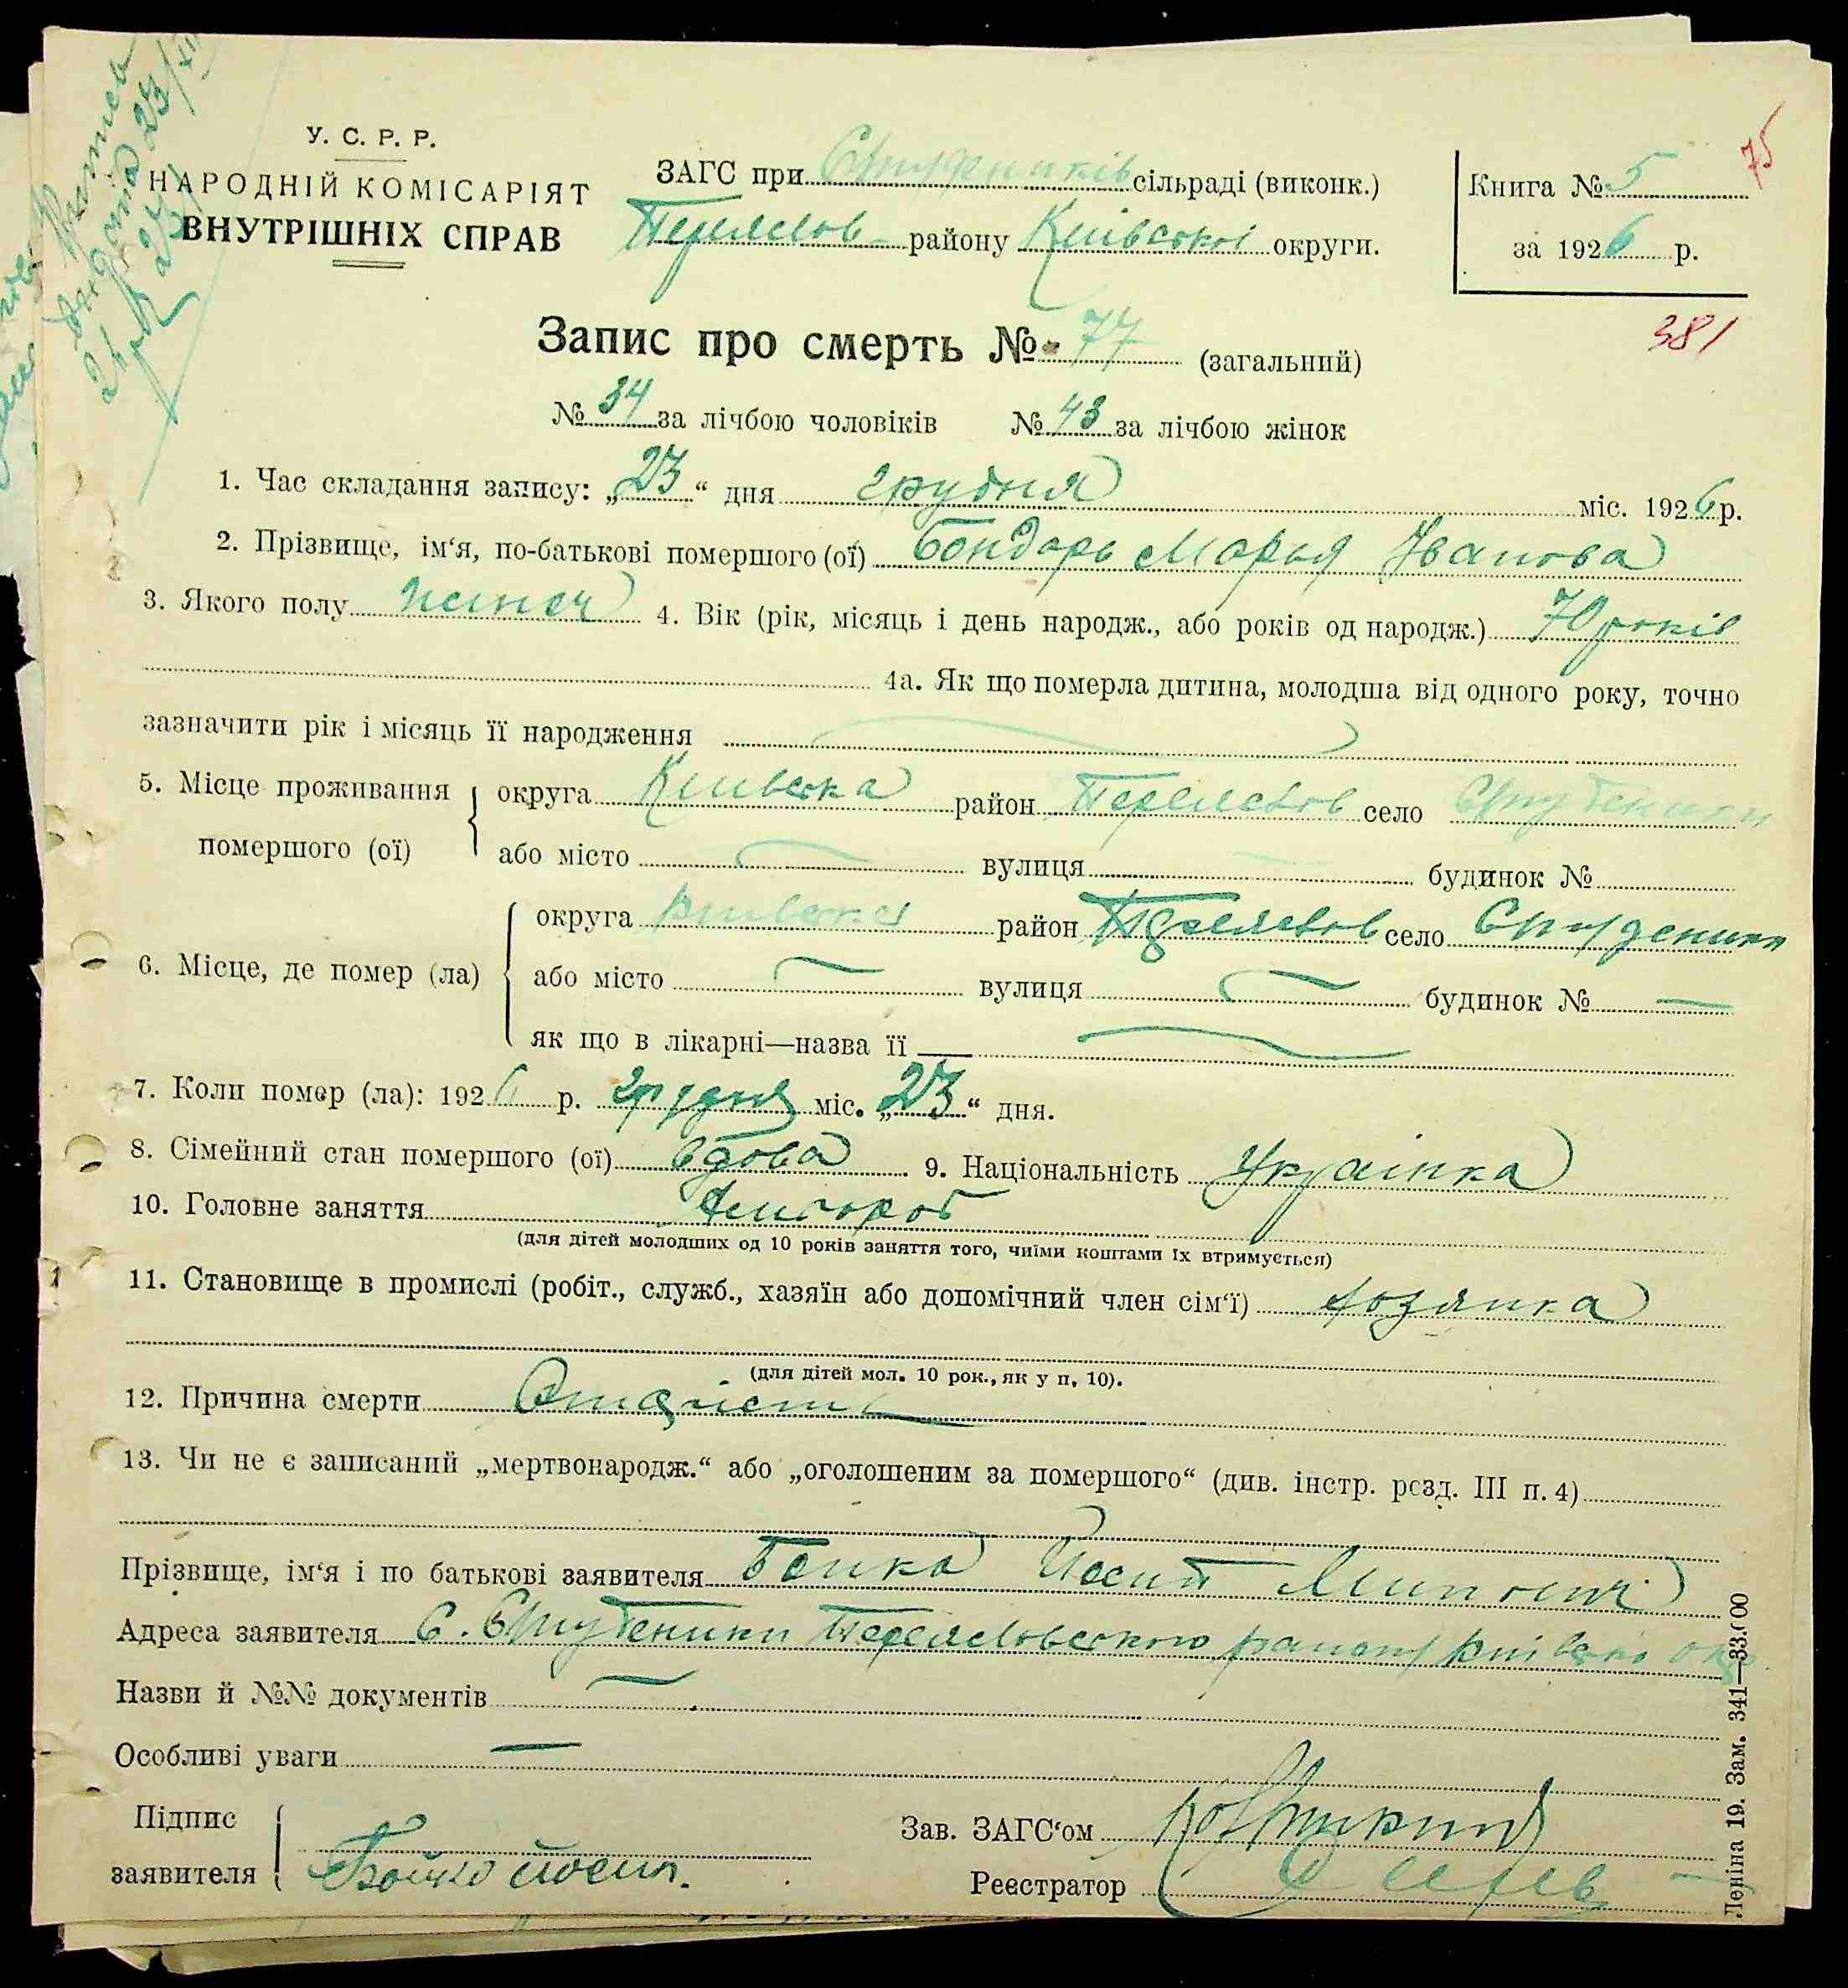 75
У. С. Р. Р.
НАРОДНІЙ КОМІСАРІЯТ
ВНУТРІШНІХ СПРАВ
ЗАГС при Студеників сільраді (виконк.)
Переяслов- району Київської округи.
Книга № 5
за 1926 р.
381
Запис про смерть № 77 (загальний)
№ 34 за лічбою чоловіків № 43 за лічбою жінок
1. Час складання запису: „23“ дня грудня міс. 1926 р.
2. Прізвище, ім‘я, по-батькові помершого (ої) Бондарь Марья Іванова
3. Якого полу жіноч 4. Вік (рік, місяць і день народж., або років од народж.) 70 років
4а. Як що померла дитина, молодша від одного року, точно
зазначити рік і місяць її народження
5. Місце проживання помершого (ої) округа Київська район Переяслов село Студеники
або місто вулиця будинок №
6. Місце, де помер (ла) округа Київська район Переяслов село Студеники
або місто — вулиця — будинок № —
як що в лікарні—назва її
7. Коли помер (ла): 1926 р. грудня міс. „23“ дня.
8. Сімейний стан помершого (ої) вдова 9. Національність Українка
10. Головне заняття хлібороб
(для дітей молодших од 10 років заняття того, чиїми коштами їх втримується)
11. Становище в промислі (робіт., служб., хазяїн або допомічний член сім‘ї) хозяика
(для дітей мол. 10 рок., як у п. 10).
12. Причина смерти Старість
13. Чи не є записаний „мертвонародж.“ або „оголошеним за помершого“ (див. інстр. розд. III п. 4)
Прізвище, ім‘я і по батькові заявителя Боико Иосип
Адреса заявителя С. Студеники Переясловського району Київсько окр
Назви й №№ документів —
Особливі уваги —
Підпис заявителя Бойко йосип.
Зав. ЗАГС‘ом
Реєстратор
Леніна 19. Зам. 341—33.000